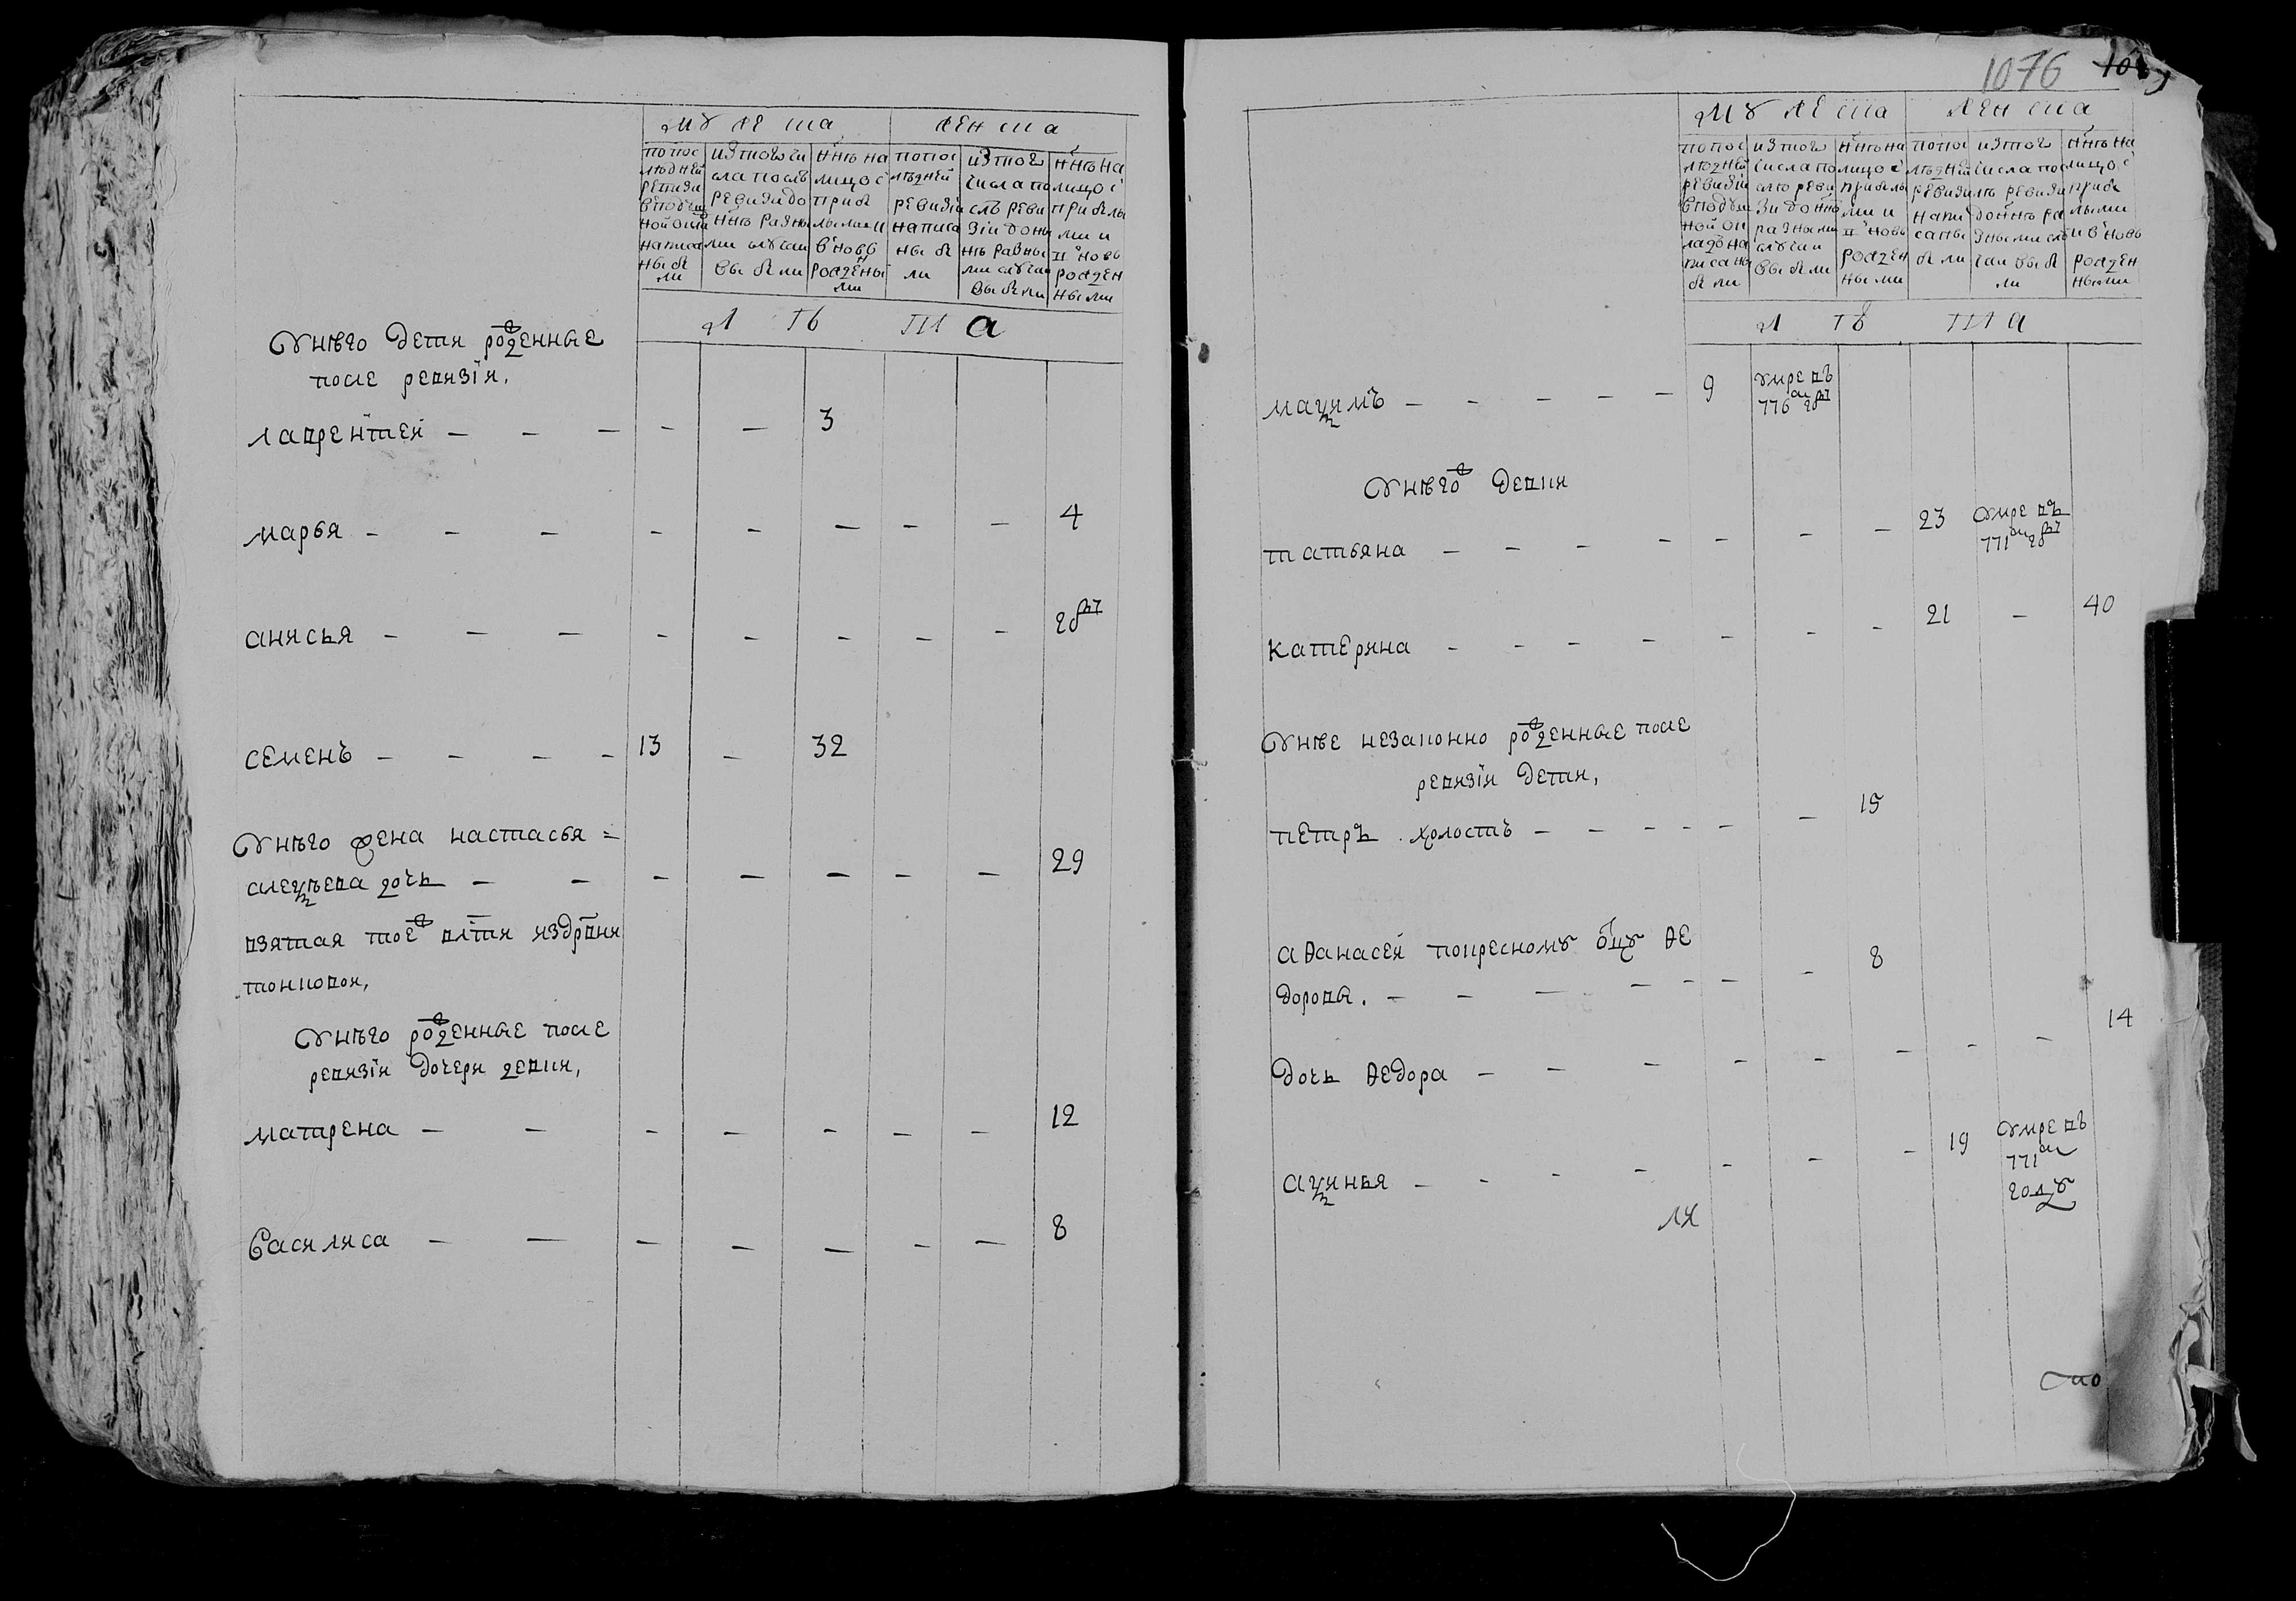 мужеска
женска
по последней ревизии в подушной оклад написаны были
из того числа после ревизии до ныне разными случаи выбыли
ныне на лицо с прибылыми и вновь рожденными
по последней ревизии написаны были
из того числа после ревизии до ныне разными случаи выбыли
ныне на лицо с прибылыми и вновь рожденными
лѣта
У него дети рожденные
после ревизiи,
лаврентей — — — — — 3
марья — — — — — — — — 4
анисья — — — — — — — — годъ
семенъ — — — — 13 — 32
У него жена настасья =
алеѯѣева дочь — — — — — — — 29
взятая тоежъ влсти из дрвни
тонковои,
У него рожденные после
ревизiи дочери девки,
матрена — — — — — — — 12
Василиса — — — — — — — 8
1076
мужеска
женска
по последней ревизии в подушной оклад написаны были
из того числа после ревизии до ныне разными случаи выбыли
ныне на лицо с прибылыми и вновь рожденными
по последней ревизии написаны были
из того числа после ревизии до ныне разными случаи выбыли
ныне на лицо с прибылыми и вновь рожденными
лѣта
маѯимъ — — — — — 9 умре въ
776м годъ
У негожъ девки
татьяна — — — — — — — 23 умре въ
771м годъ
катерина — — — — — — — 21 — 40
У нее незаконно рожденные после
ревизiи дети,
петръ холостъ — — — — — — 15
аѳанасей по кресному отцу ѳе
доровъ. — — — — — — — 8
дочь ѳедора — — — — — — — — 14
аѯинья — — — — — — — 19 умре въ
771м
году
ли